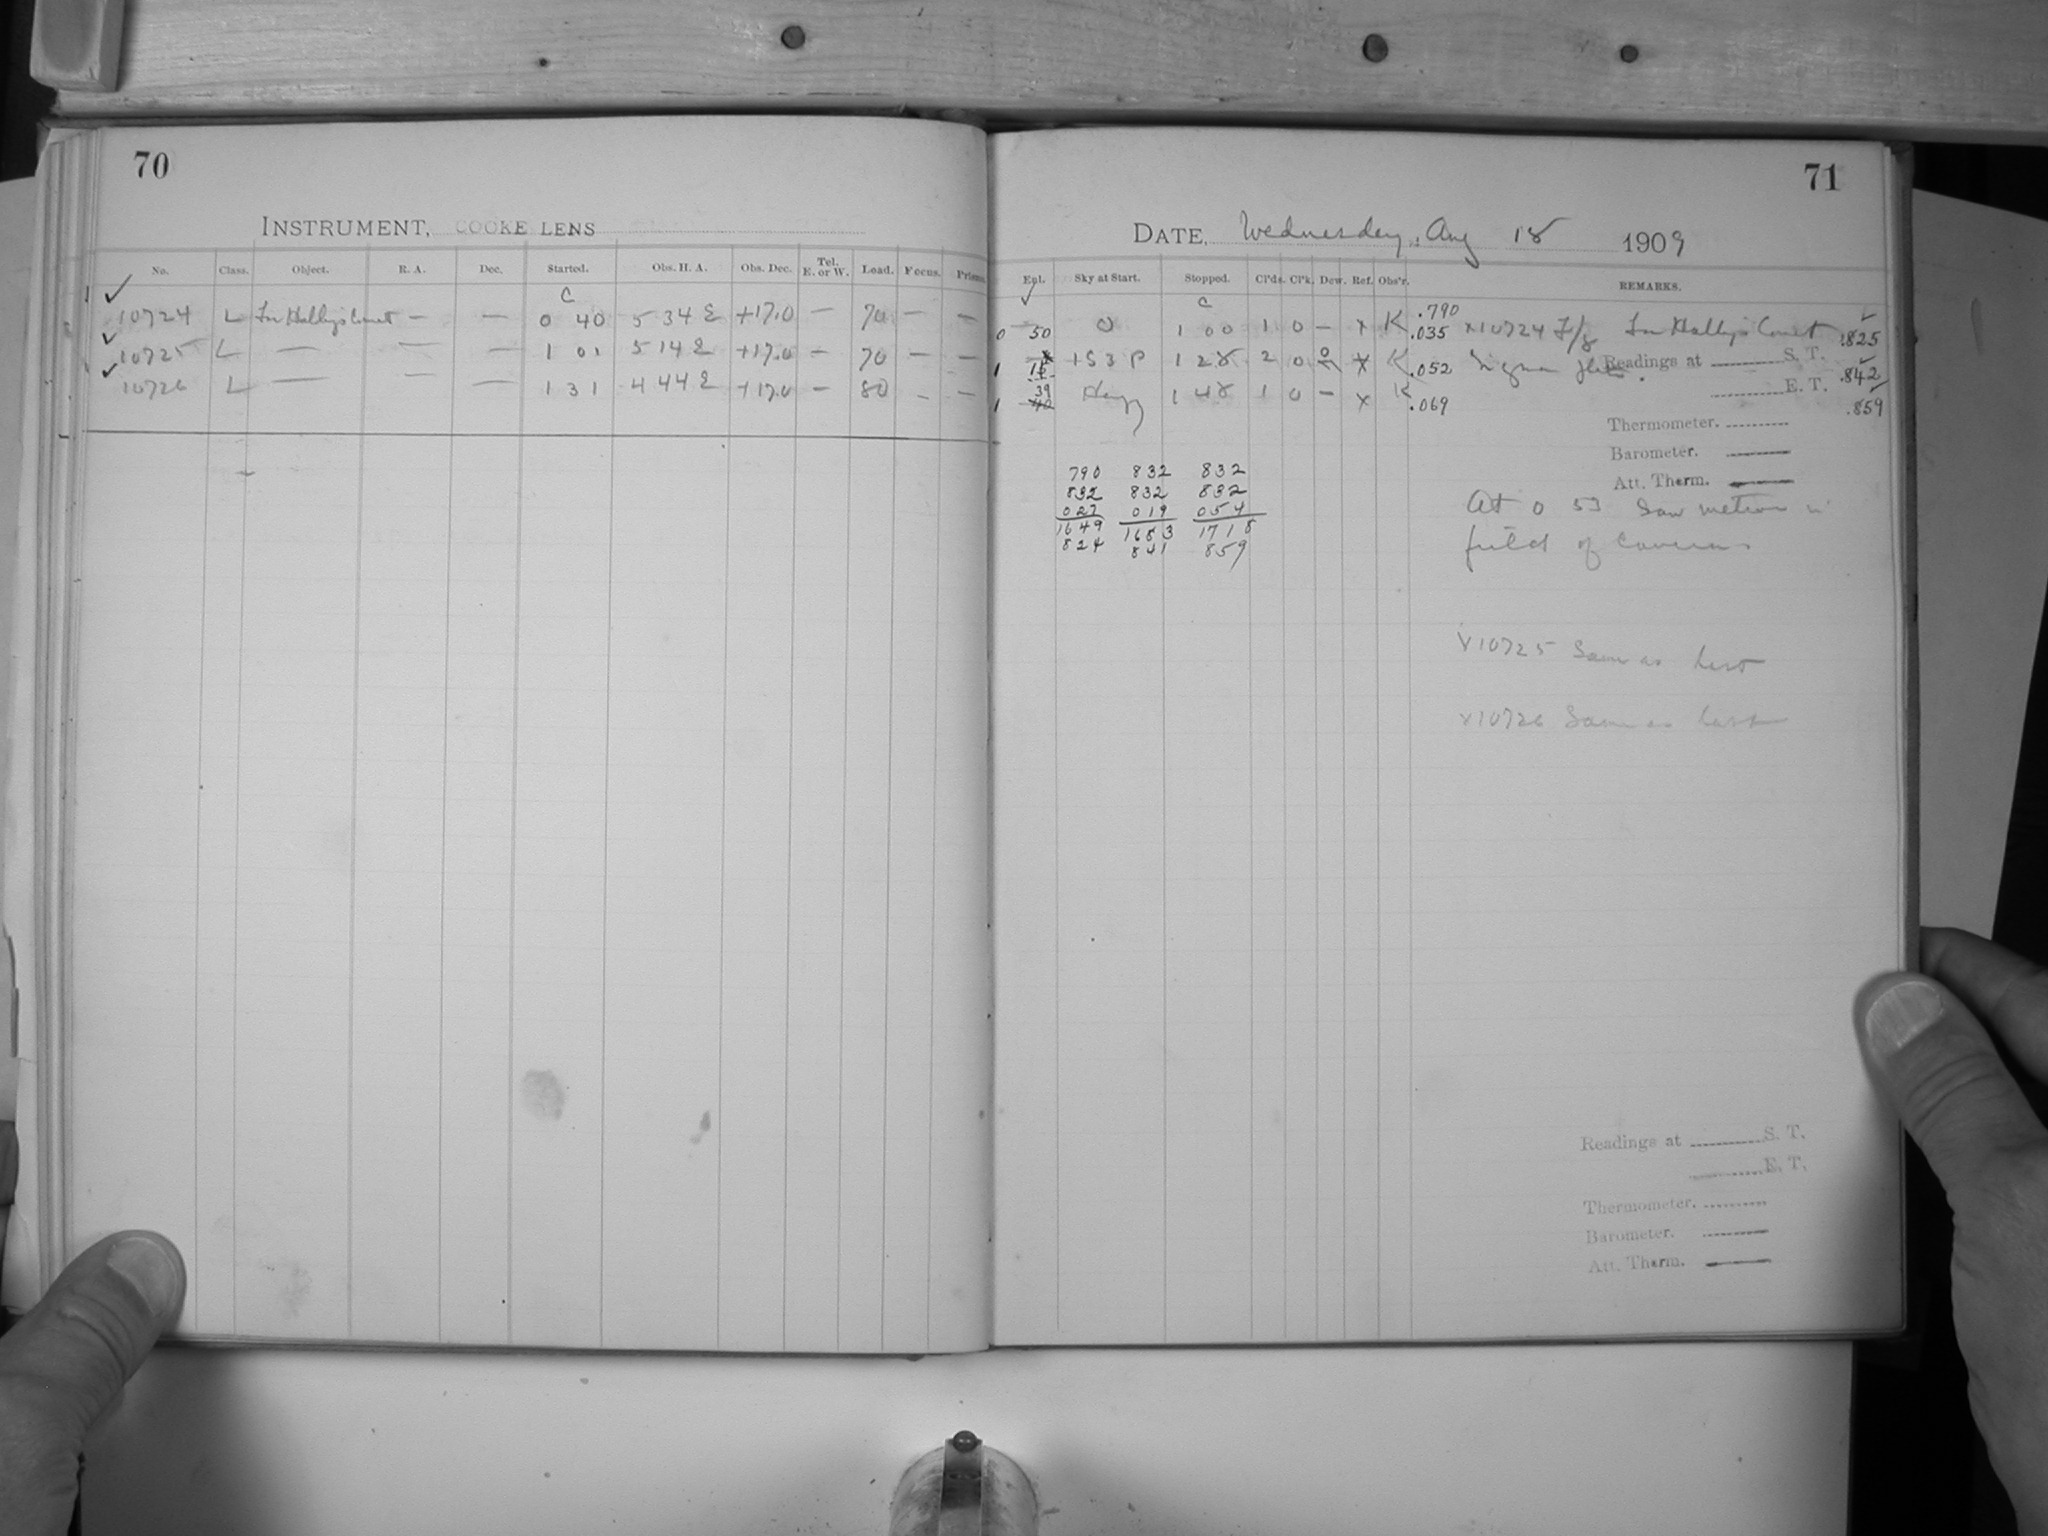 70
INSTRUMENT, COOKE LENS
No. Class. Object. R. A. Dec. Started. Obs. H. A. Obs. Dec. Tel. E. or W. Load. Focus. Prisms
C
10724 L For Halley's Comet — — 0 40 5 34 E +17.0 — 70 — —
10725 L — — — 1 01 5 14 E +17.0 — 70 — —
10726 L — — — 1 31 4 44 E +17.0 — 80 — —
71
DATE, Wednesday, Aug 18 1909
Epl. Sky at Start. Stopped. Cl'ds. Cl'k. Dew. Ref. Obs'r. REMARKS.
C
.790
0 50 0 1 00 1 0 — x K .035 x10724 For Halley's Comet .825
1 1S3P 1 28 2 0 x K .052 Readings at S. T. .842
1 39 Hazy 1 48 1 0 — x K .069 E. T. .859
Thermometer.
Barometer.
Att. Therm.
790 832 832
832 832 832
027 019 054
1649 1683 1718
824 841 859
At 0 53 Saw meteor in
field of Camera
x10725 Same as last
x10726 Same as last
Readings at S. T.
E. T.
Thermometer.
Barometer.
Att. Therm.